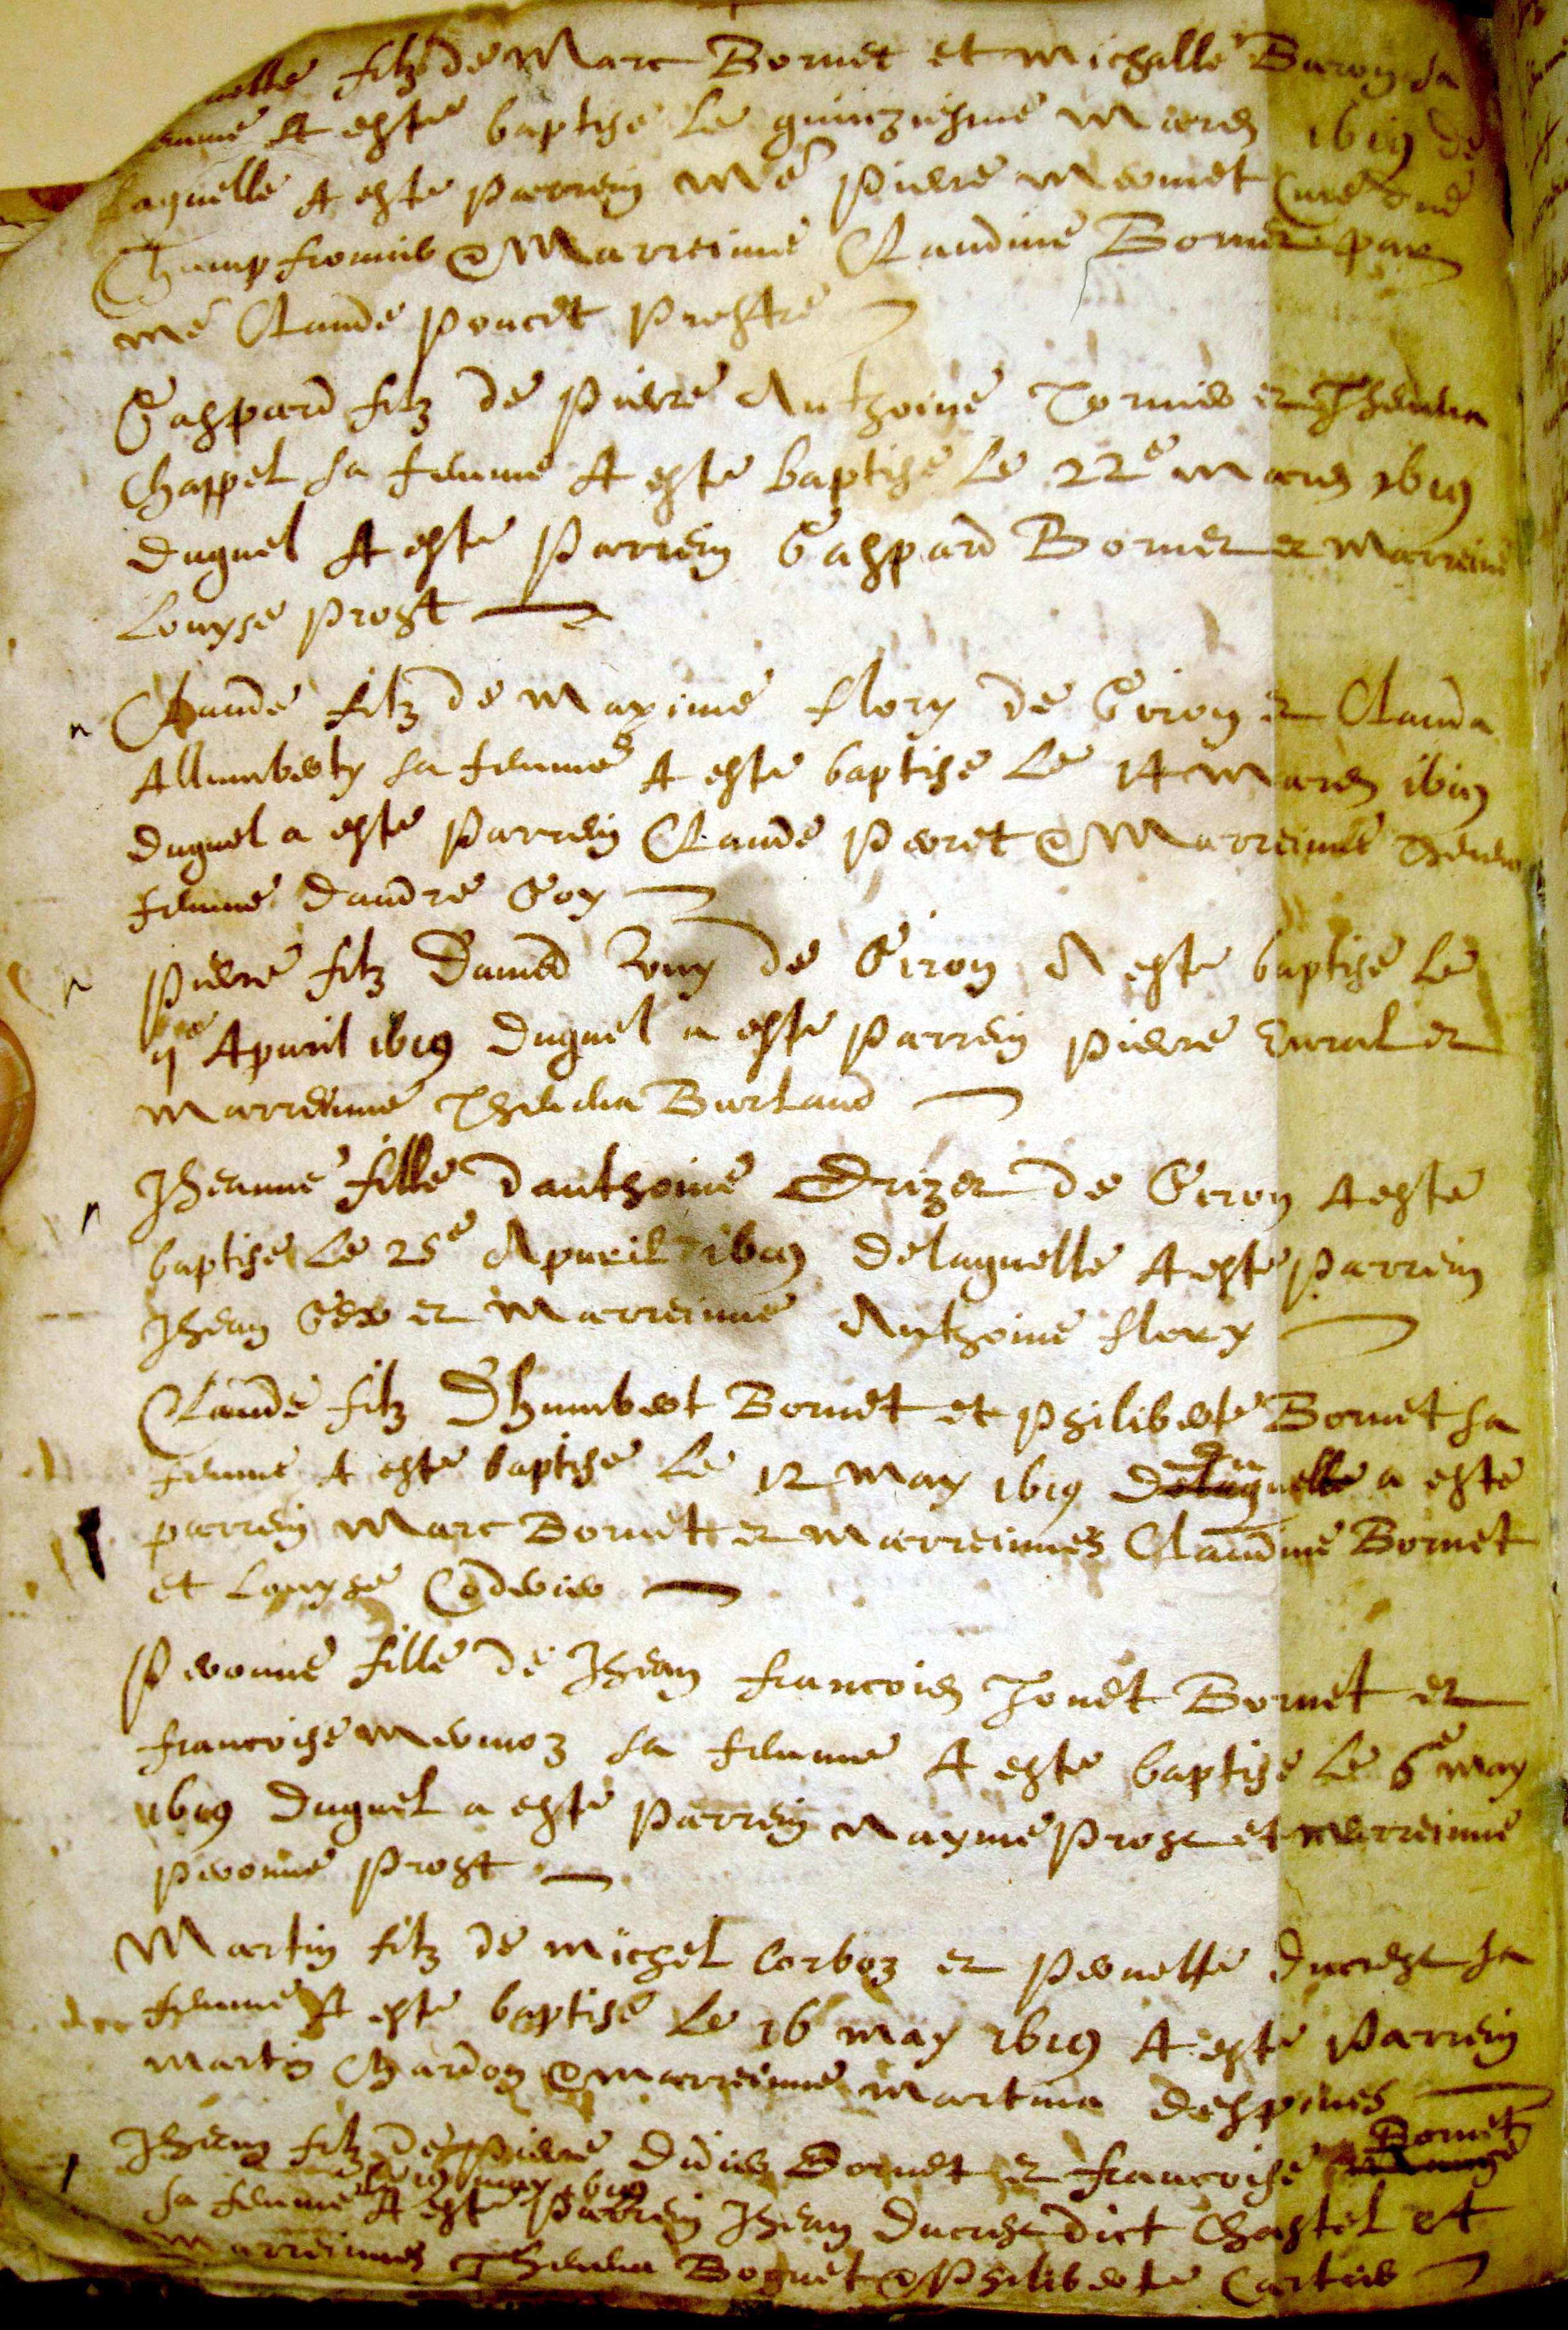 filz de Marc Bornet et Michalle Baron sa
A este baptise le quinziesme Mars 1619 de
laquelle A este parrein Mre Pierre Mermet Cure de
Champfromier & Marreinne Claudine Bornet par
me Claude Poncet prestre
Gaspard filz de Pierre Anthoine Tornier et Thevena
Chappel sa femme A este baptise le 22e Mars 1619
duquel A este Parrein Gaspard Bornet et Marreine
Louyse Prost
n Claude filz de Maxime Flory de Giron et Clauda
Allumberty sa femme A este baptise le 14 Mars 1619
duquel a este Parrein Claude Perret & Marreinne
femme dandre Goy
n Pierre filz Damed de Giron A este baptise le
Apvril 1619 duquel a este Parrein Pierre et
Marreinne Thevena Burlaud
n Jheanne fille danthoine de Giron A este
baptise le 25e Apvril 1619 delaquelle A este Parrein
Jhean Ger et Marreinne Anthoine Flory
Claude filz Dhumbert Bornet et Philiberte Bornet sa
femme A este baptise le 12 May 1619 duquel a este
parrein Marc Bornet et Marreinnes Claudine Bornet
et Louyse
Pernne fille de Jhean Francois Tonet Bornet et
Francoise Mermoz sa femme A este baptise le 6e May
1619 duquel a este Parrein Nayme Prost et Marreinne
Prost
Martin filz de Michel Corboz et Pernette Ducrest sa
femme A este baptise le 16 May 1619 A este Parrein
Martin Chardon & Marreinne Martina Despines
Jhean filz de Pierre Didier Bornet et Francoise Bornet
le 19 May 1619
sa femme A este Parrein Jhean Ducrest dict Chastel et
Marreinnes Thevena Boguet & Philiberte Cartier